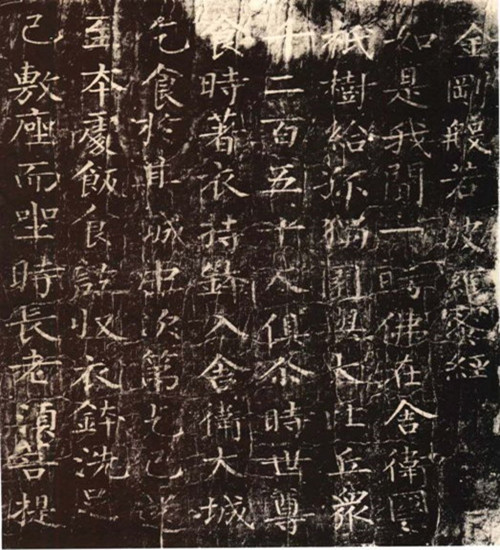 金剛般若波羅蜜經
如是我聞一時佛在舍衛國
祇樹給孤獨園與大比丘眾
千二百五十人俱尒時世尊
食時著衣持鉢入舍衛大城
乞食於其城中次第乞已還
至本處飯食訖收衣鉢洗足
已敷座而坐時長老須菩提